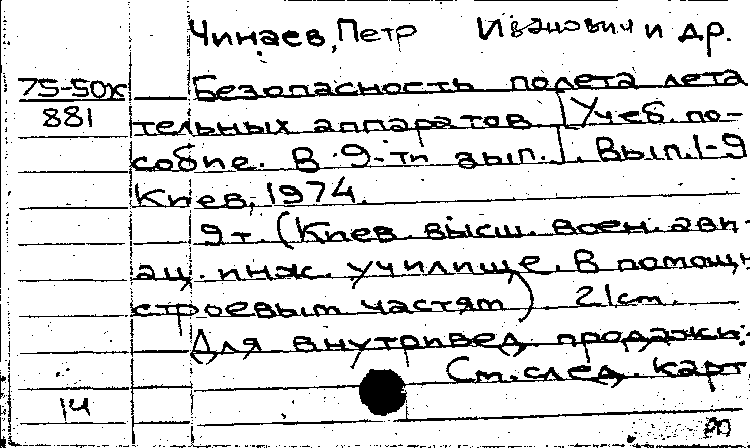 Чинаев, Петр Иванович и др.
75-50к Безопасность полета лета
881 тельных аппаратов. [Учеб. по-
собие. В 9-ти вып.]. Вып. 1-9
Киев, 1974.
9 т. (Киев. высш. воен. ави-
ац. инж. училище. В помощь
строевым частям). 21 см.
Для внутривед. продажи.
См. след. карт
14